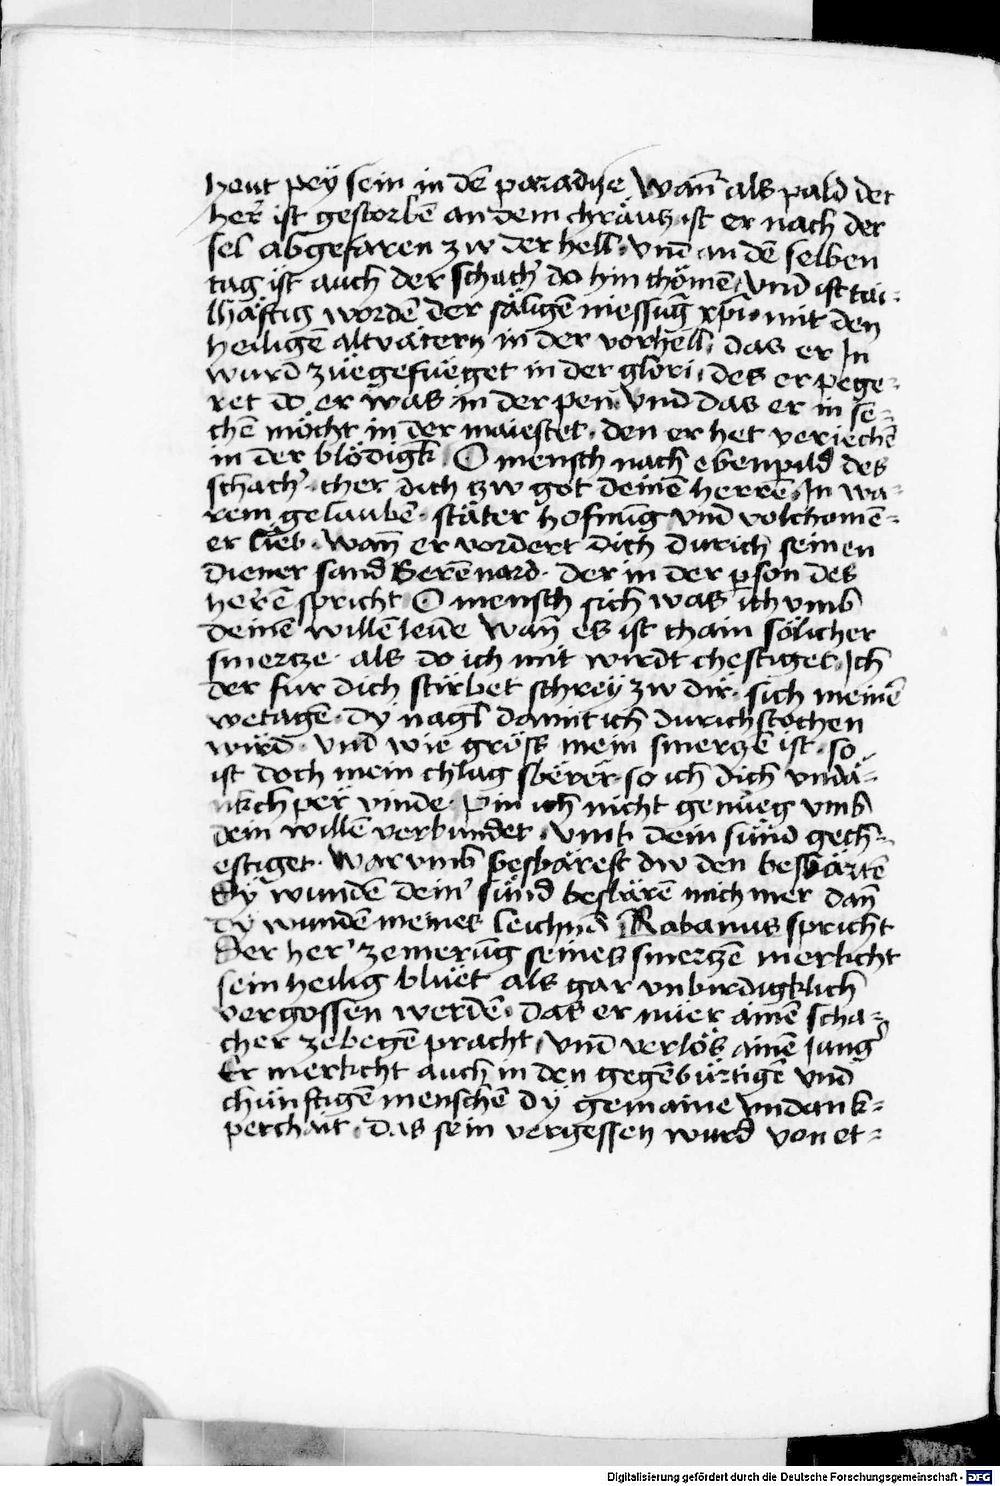 heut peÿ sein in dē paradise Wañ als pald der
her̄ ist gestorbē an dem chräutz ist er nach der
sel abgefaren zw der hell · vnd an dē selben
tag ist auch der schacher do hin chömē vnd ist tai-
lhäftig wordē der säligē niessūg xp̄i · mit den
heiligē altvätern in der vorhell · das er In
wurd zuëgefueget in der glori · des er pege-
ret do er was in der pen · vnd das er in se-
chē möcht in der maiestet · den er het veriechē
in der blödigk · O mensch nach ebenpild des
schacher · cher dich zw got deinē herrē In wa-
rem gelaubē · stäter hofnūg vnd volchomē-
er lieb · wañ er vordert dich durich seinen
diener sand Berēnard · der in der pson des
herrē spricht O mensch sich was ich vmb
deinē willē leide Wañ es ist chain sölicher
smercze · als do ich mit wirdt chestiget · Ich
der fur dich stirbet schreÿ zw dir · sich meinē
wetagē · dÿ nagl damit ich durichstochen
wird · vnd wie gröss mein smerczē ist · so
ist doch mein chlag sbërer so ich dich vndä-
nkchper vinde · Pin ich nicht genüeg vmb
dein willē verbundet · vmb dein sünd gech-
estiget · Warvmb besbärest dw den besbärtē
dÿ wundē deiner sünd besbärē mich mer dañ
dÿ wundē meines leichnā Rabanus spricht
Der her zemerūg seines smerczē merkcht
sein heilig bluët als gar vnbirdigklich
vergossen werdē · das er nuer ainē scha-
cher zebegē pracht vnd verlös ainē Iunger
Er merkcht auch in den gegēbürtigē vnd
chünftigē menschē dÿ gemaine vndank-
perchait · das sein vergessen wurd von et-
Digitalisierung gefördert durch die Deutsche Forschungsgemeinschaft - DFG